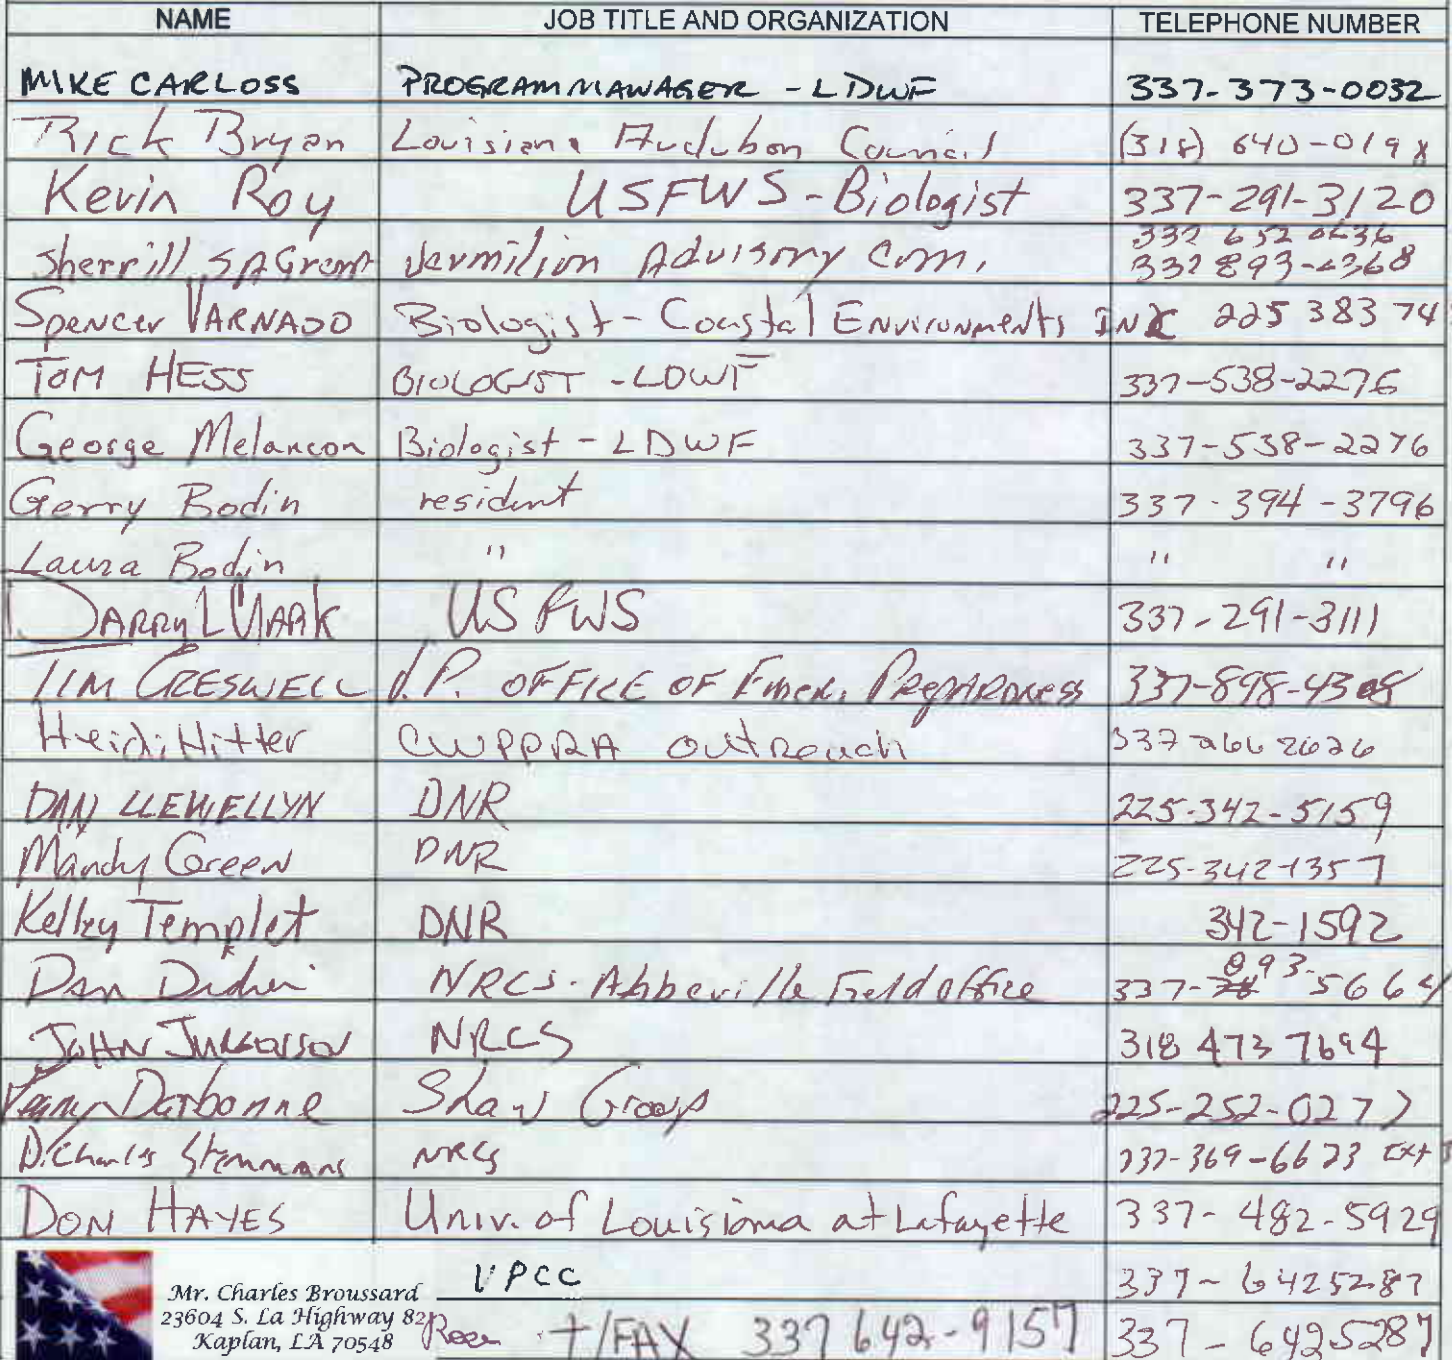 NAME JOB TITLE AND ORGANIZATION TELEPHONE NUMBER
MIKE CARLOSS PROGRAM MANAGER - LDWF 337-373-0032
Rick Bryan Louisiana Audubon Council (318) 640-019
Kevin Roy USFWS - Biologist 337-291-3120
Sherrill SAGrera Vermilion Advisory Com. 337 652 0636
337 893-4368
Spencer VARNADO Biologist - Coastal ENvironments INC 225 383 74
TOM HESS BIOLOGIST - LDWF 337-538-2276
George Melancon Biologist - LDWF 337-538-2276
Gerry Bodin resident 337-394-3796
Laura Bodin " " "
DARRyL CLARK US FWS 337-291-3111
TIM CRESWELL V.P. OFFICE OF Emer. PREPARDNESS 337-898-4308
Heidi Hitter CWPPRA OutReach 337 266 2626
DAN LLEWELLYN DNR 225-342-5159
Mandy Green DNR 225-342-1357
Kelley Templet DNR 342-1592
Dan Didier NRCS - Abbeville Field office 337-893-5664
JOHN JURGENSEN NRCS 318 473 7694
Darbonne Shaw Group 225-252-0277
D. Charles Stemmans NRCS 337-369-6623 Ext
DON HAYES Univ. of Louisiana at Lafayette 337-482-5929
Mr. Charles Broussard VPCC 337-6425287
23604 S. La Highway 82
Kaplan, LA 70548 /FAX 337 642-9157 337-6425287